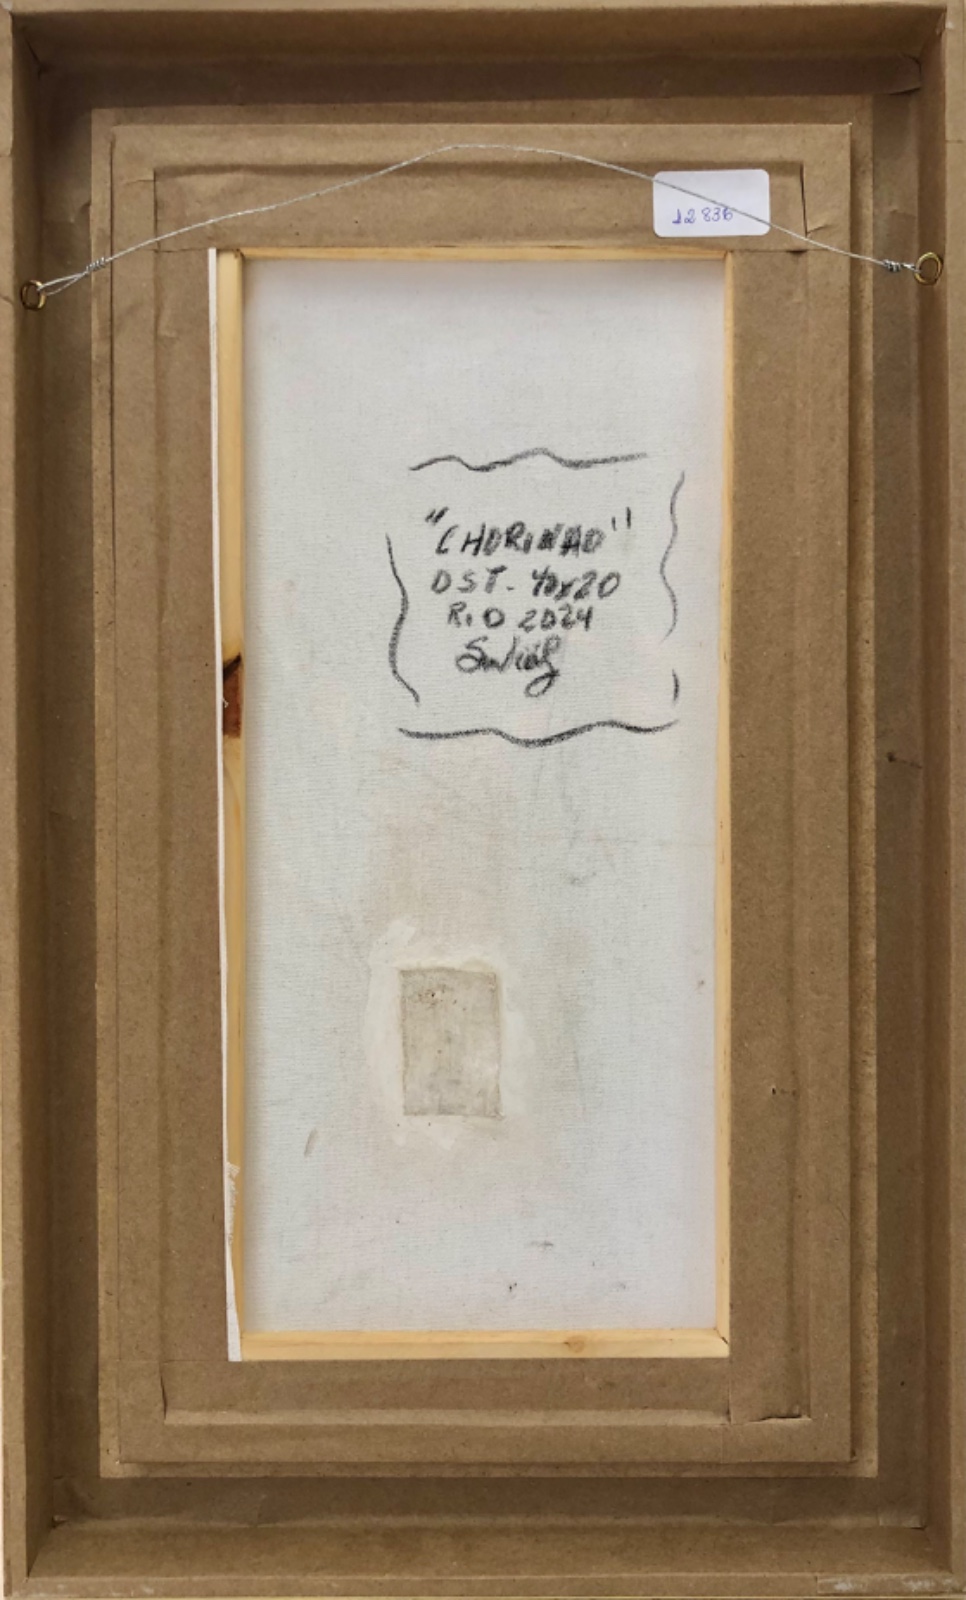 12836
"CHORINHO"
OST. 40x20
RIO 2024